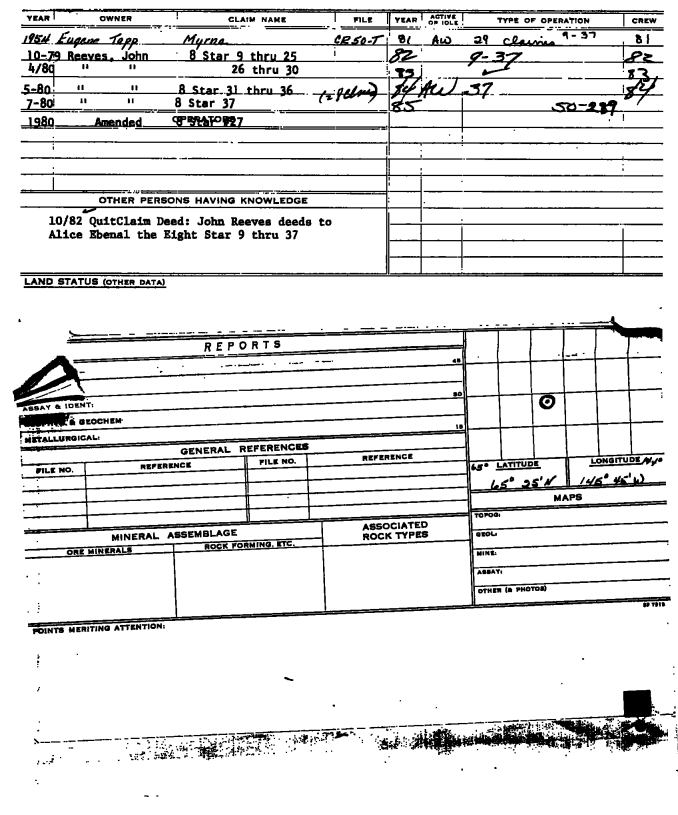 YEAR OWNER CLAIM NAME FILE YEAR ACTIVE OR IDLE TYPE OF OPERATION CREW
1954 Eugene Tapp Myrna CR50-T 81 AW 29 claims 9-37 81
10-79 Reeves, John 8 Star 9 thru 25 82 9-37 82
4/80 " " 26 thru 30 83 ✓ 83
5-80 " " 8 Star 31 thru 36 84 AW 37 84
7-80 " " 8 Star 37 85 50-289
1980 Amended
OTHER PERSONS HAVING KNOWLEDGE
10/82 QuitClaim Deed: John Reeves deeds to
Alice Ebenal the Eight Star 9 thru 37
LAND STATUS (OTHER DATA)
REPORTS
45
30
ASSAY & IDENT:
& GEOCHEM
15
METALLURGICAL:
GENERAL REFERENCES
FILE NO. REFERENCE FILE NO. REFERENCE
65° LATITUDE LONGITUDE
65° 25' N 145° 45' W
MAPS
MINERAL ASSEMBLAGE
ASSOCIATED ROCK TYPES
ORE MINERALS ROCK FORMING, ETC.
TOPOG:
GEOL:
MINE:
ASSAY:
OTHER (& PHOTOS)
POINTS MERITING ATTENTION: